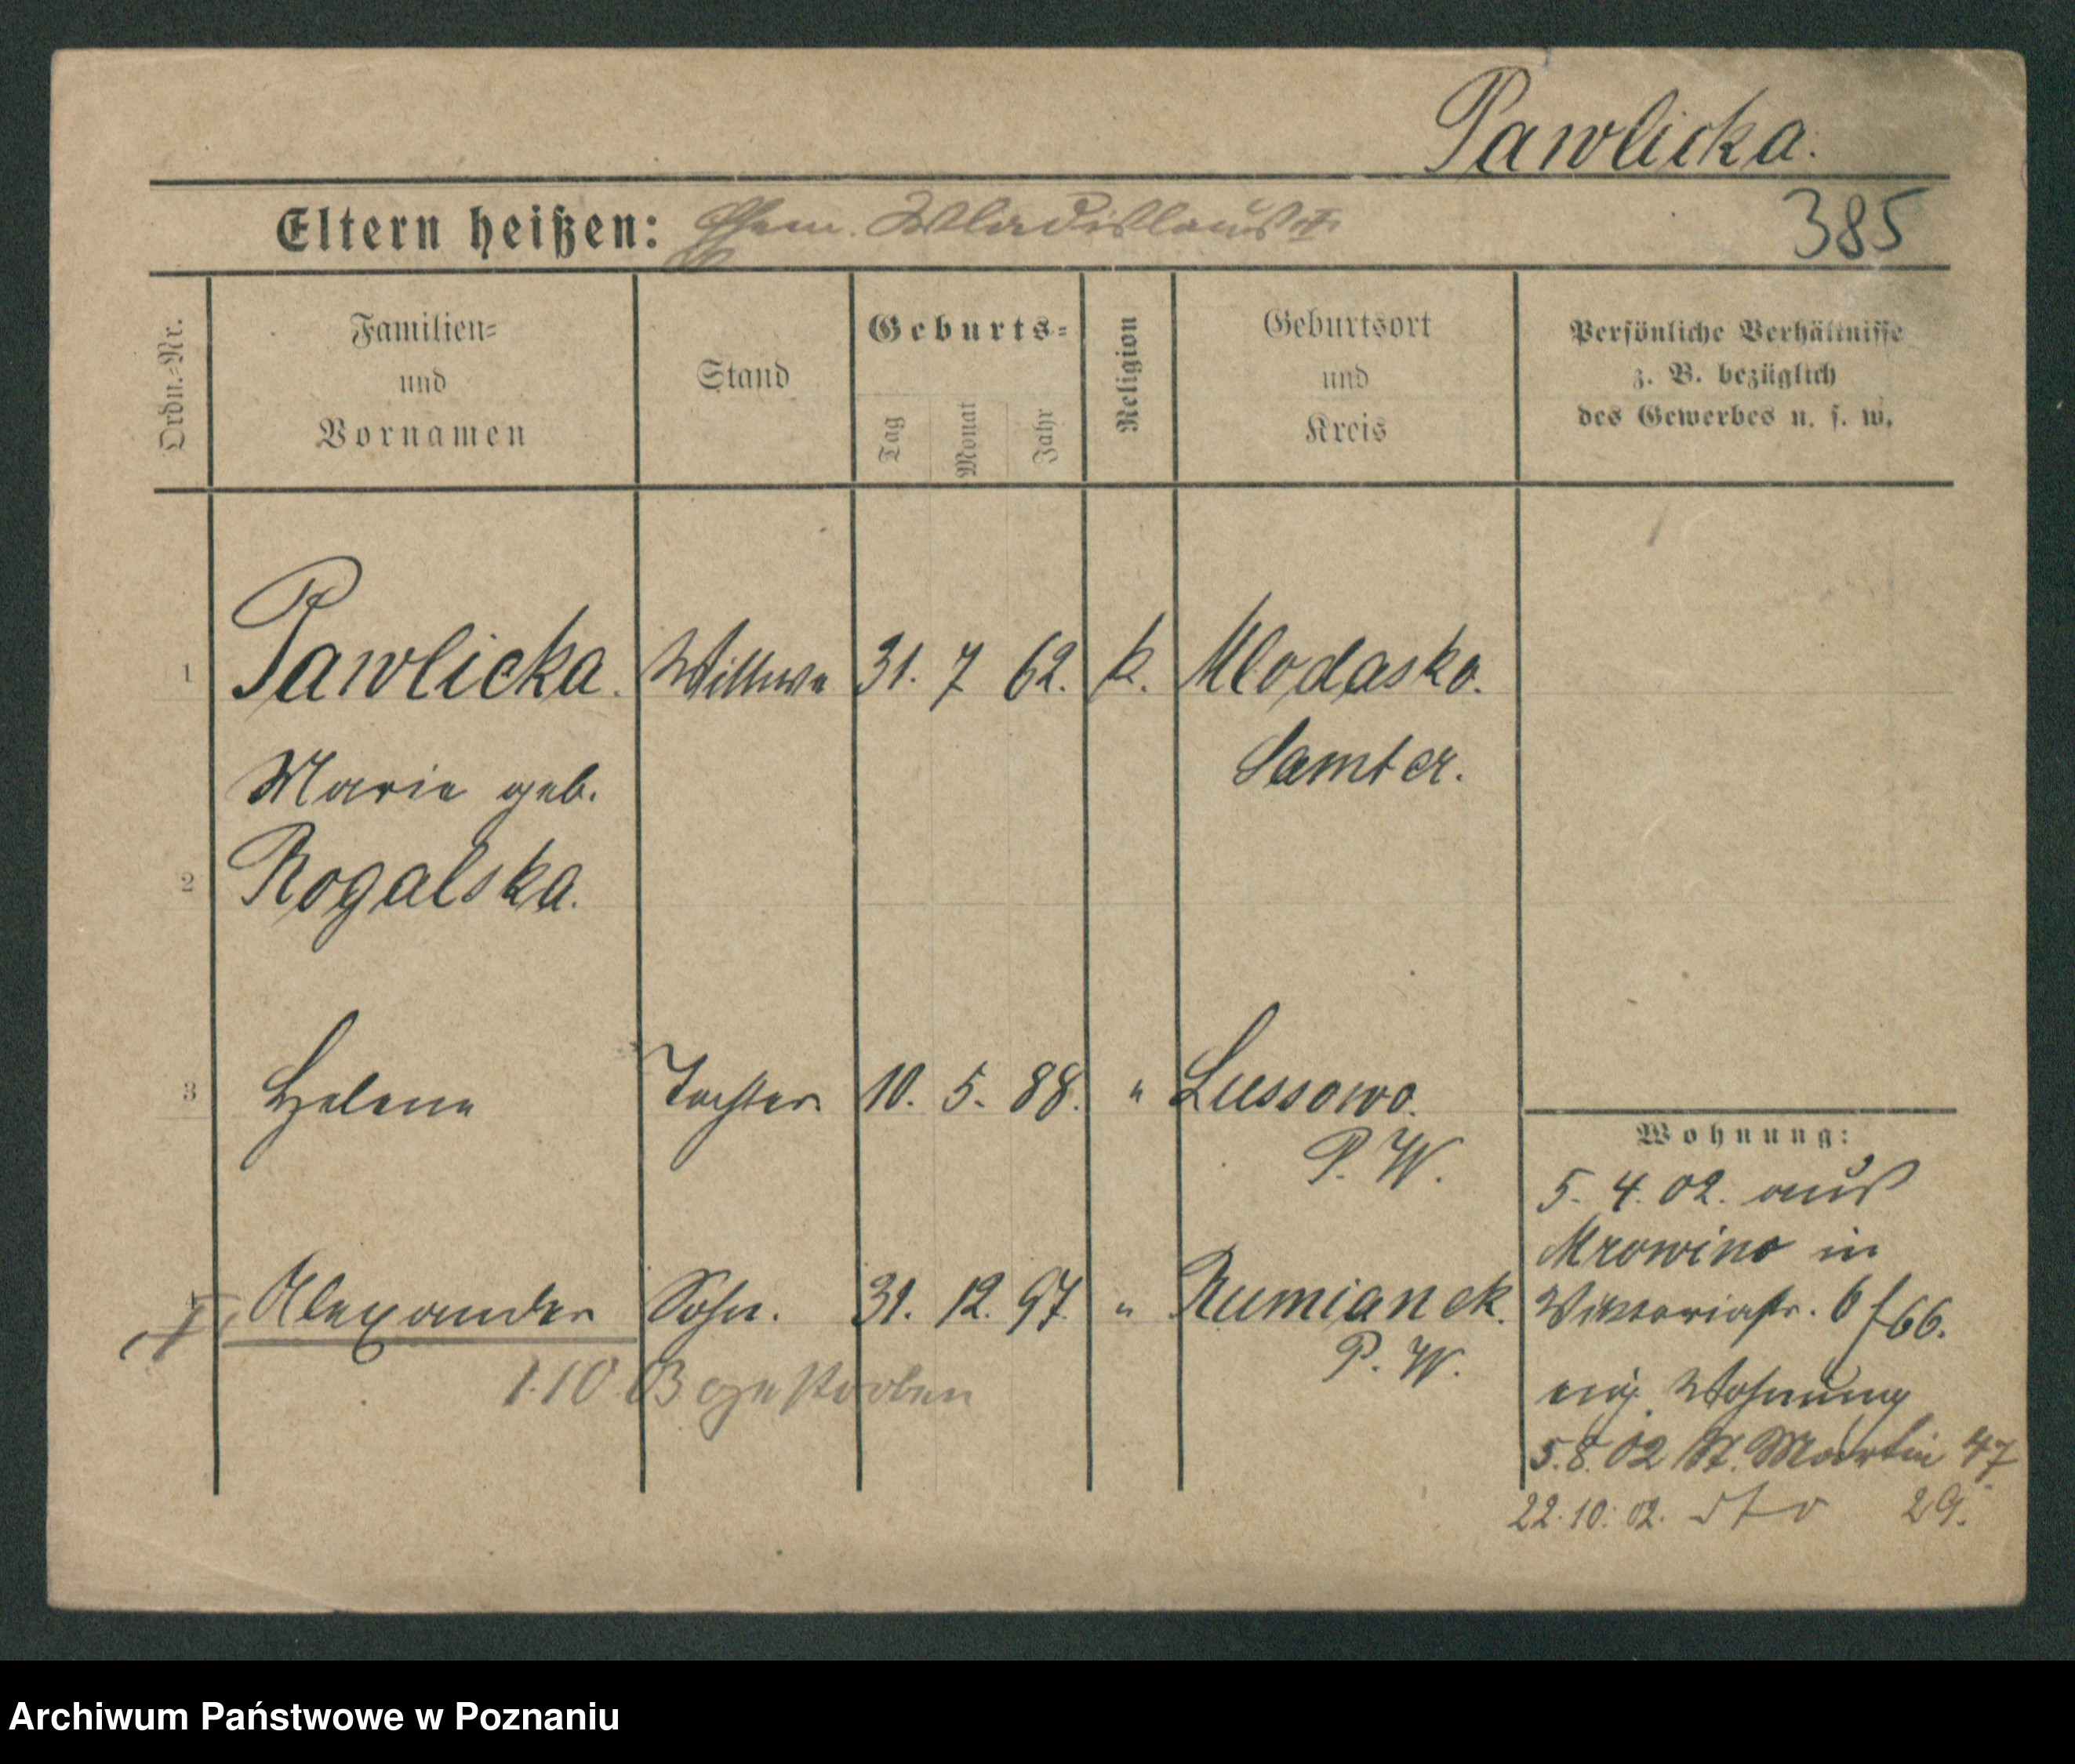 Pawlicka.
Eltern heißen: Ehem. Wladislaus †
385
Ordn.-Nr.
Familien-
und
Vornamen
Stand
Geburts-
Tag
Monat
Jahr
Religion
Geburtsort
und
Kreis
Persönliche Verhältnisse
z. B. bezüglich
des Gewerbes u. s. w.
1 Pawlicka. Wittwe 31. 7 62. k. Mlodasko.
Samter.
Marie geb.
2 Rogalska.
3 Helene Tochter 10. 5. 88. " Lussowo.
P. W.
Wohnung:
5. 4. 02. aus
Mrowino in
† Alexander Sohn. 31. 12. 97 " Rumianek.
P. W.
Viktoriastr. 6
eig. Wohnung
1.10 03 gestorben
5. 8. 02 St. Martin 47
22. 10. 02. dto 29.
Archiwum Państwowe w Poznaniu